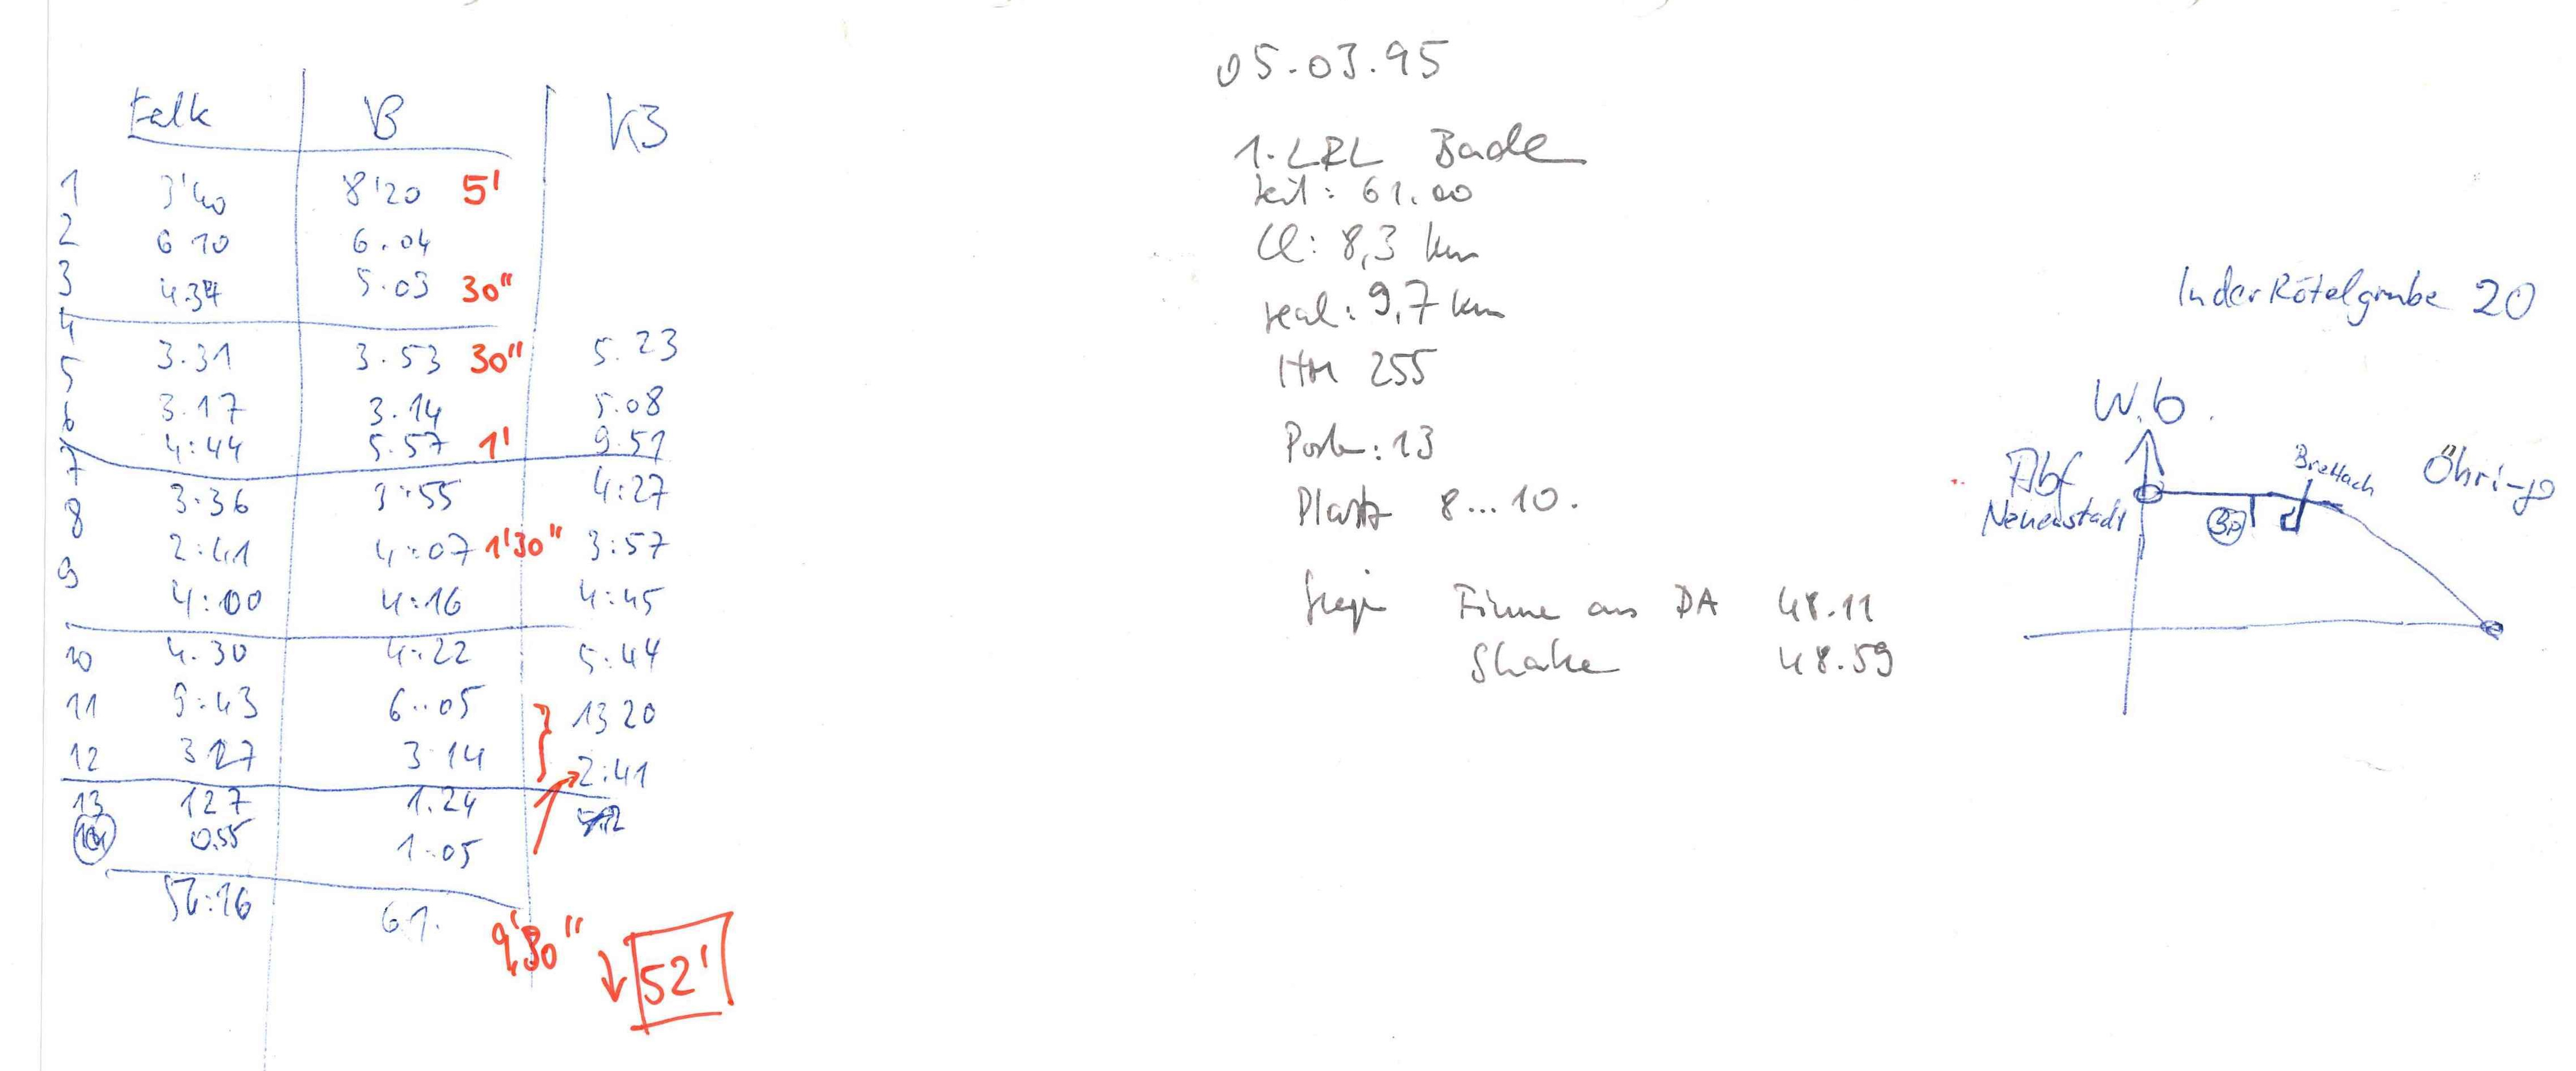 Falk B K3
1 3'40 8'20 5'
2 6 10 6.04
3 4.34 5.03 30"
4 3.31 3.53 30" 5.23
5 3.17 3.14 5.08
6 4:44 5.57 1' 9.51
7 3:36 3:55 4:27
8 2:41 4:07 1'30" 3:57
9 4:00 4:16 4:45
10 4.30 4:22 5:44
11 9:43 6:05 13 20
12 3 27 3 14 2:41
13 1 27 1.24
0.55 1:05
56:16 61.
9'30"
52'
05.03.95
1. LRL Bade
Zeit: 61.00
Cl: 8,3 km
real: 9,7 km
Hm 255
Posten: 13
Platz 8...10.
Sieger Finne aus DA 48.11
Shake 48.59
In der Rötelgrube 20
W.b.
Abf
Neuenstadt
Brettach
BP